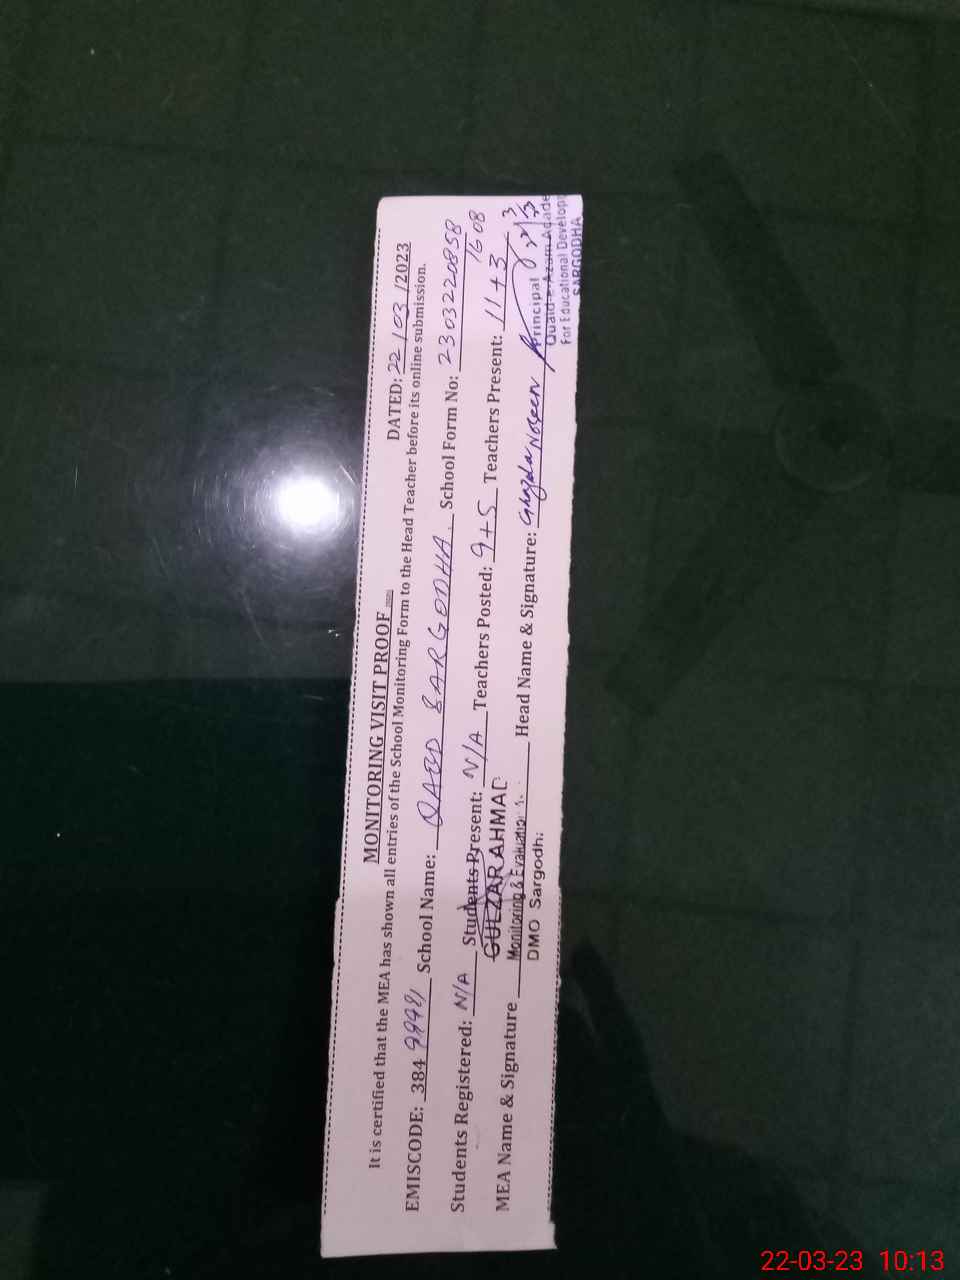 MONITORING VISIT PROOF
DATED: 22/03/2023
It is certified that the MEA has shown all entries of the School Monitoring Form to the Head Teacher before its online submission.
EMISCODE: 384 School Name: QAED SARGODHA. School Form No: 2303220858
1608
Students Registered: N/A Students Present: N/A Teachers Posted: 9+5 Teachers Present: 11+3
GULZAR AHMAD
MEA Name & Signature Head Name & Signature: Ghazala Noseen
Monitoring & Evaluation
DMO Sargodh
Principal
Quaid-e-Azam Acade
For Educational Develop
SARGODHA
22-03-23 10:13